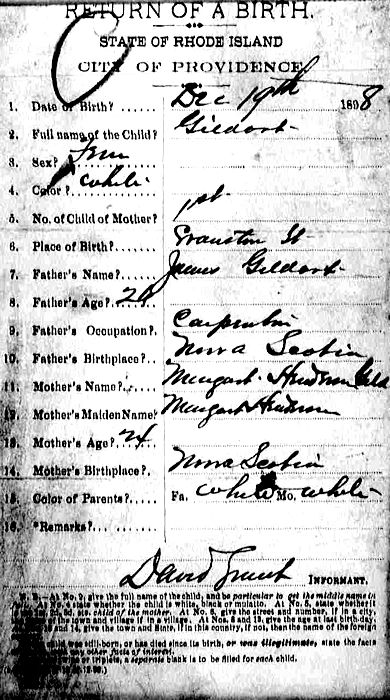 RETURN OF A BIRTH.
STATE OF RHODE ISLAND
CITY OF PROVIDENCE.
1. Date of Birth? Dec 19th 1898
2. Full name of the Child? Gildart
3. Sex? Fem
4. Color? White
5. No. of Child of Mother? 1st
6. Place of Birth? Cranston St
7. Father's Name? James Gildart
8. Father's Age?
9. Father's Occupation? Carpenter
10. Father's Birthplace? Nova Scotia
11. Mother's Name? Margaret Henderson
12. Mother's Maiden Name? Margaret Henderson
13. Mother's Age? 24
14. Mother's Birthplace? Nova Scotia
15. Color of Parents? Fa. White Mo. White
16. *Remarks?
David Grant INFORMANT.
N. B.—At No. 2, give the full name of the child, and be particular to get the middle name in
full. At No. 4 state whether the child is white, black or mulatto. At No. 5, state whether it
1st, 2d, 3d, etc. child of the mother. At No. 6, give the street and number, if in a city,
of the town and village if in a village. At Nos. 8 and 13, give the age at last birth-day.
and 14, give the town and State, if in this country, if not, then the name of the foreign
child was still-born, or has died since its birth, or was illegitimate, state the facts
any other facts of interest.
twins or triplets, a separate blank is to be filled for each child.